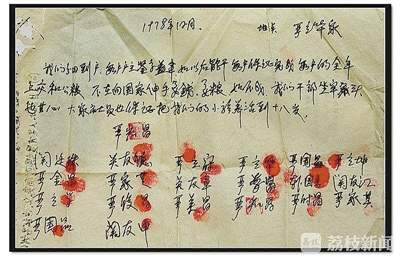 1978年12月 地点 严立华家
我们分田到户 每户户主签字盖章 如以后能干 每户保证完成每户的全年
上交和公粮 不在向国家伸手要钱要粮 如不成 我们干部坐牢刹头
也干心 大家社员也保证把我们的小孩养活到十八岁
严宏昌
关廷珠 关友德 严立符 严立华 严国昌 严立坤
严金昌 严家芝 关友章 严学昌 韩国云 关友江
严立学 严俊昌 严美昌 严付昌 严家其
严国品 关友申
荔枝新闻